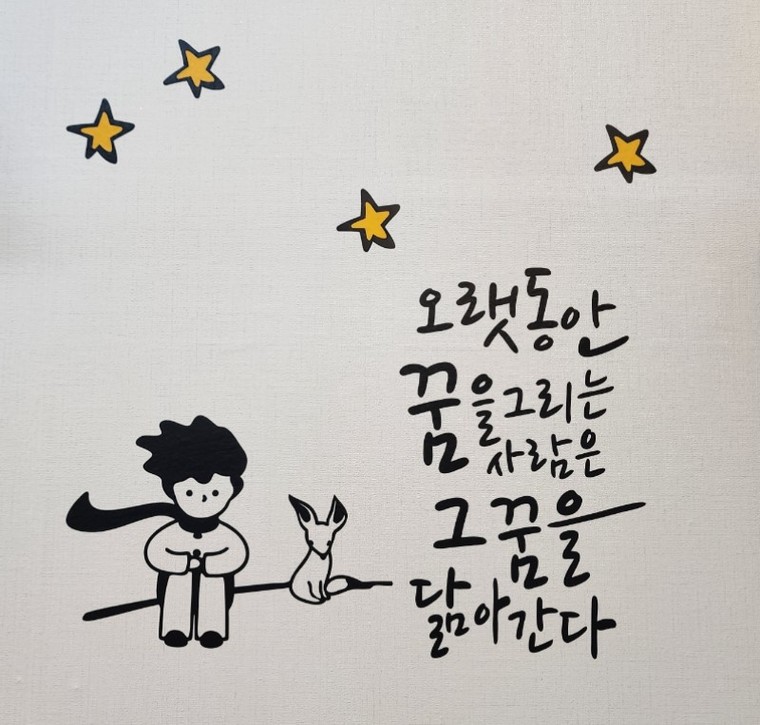 오랫동안
꿈을그리는
사람은
그꿈을
닮아간다